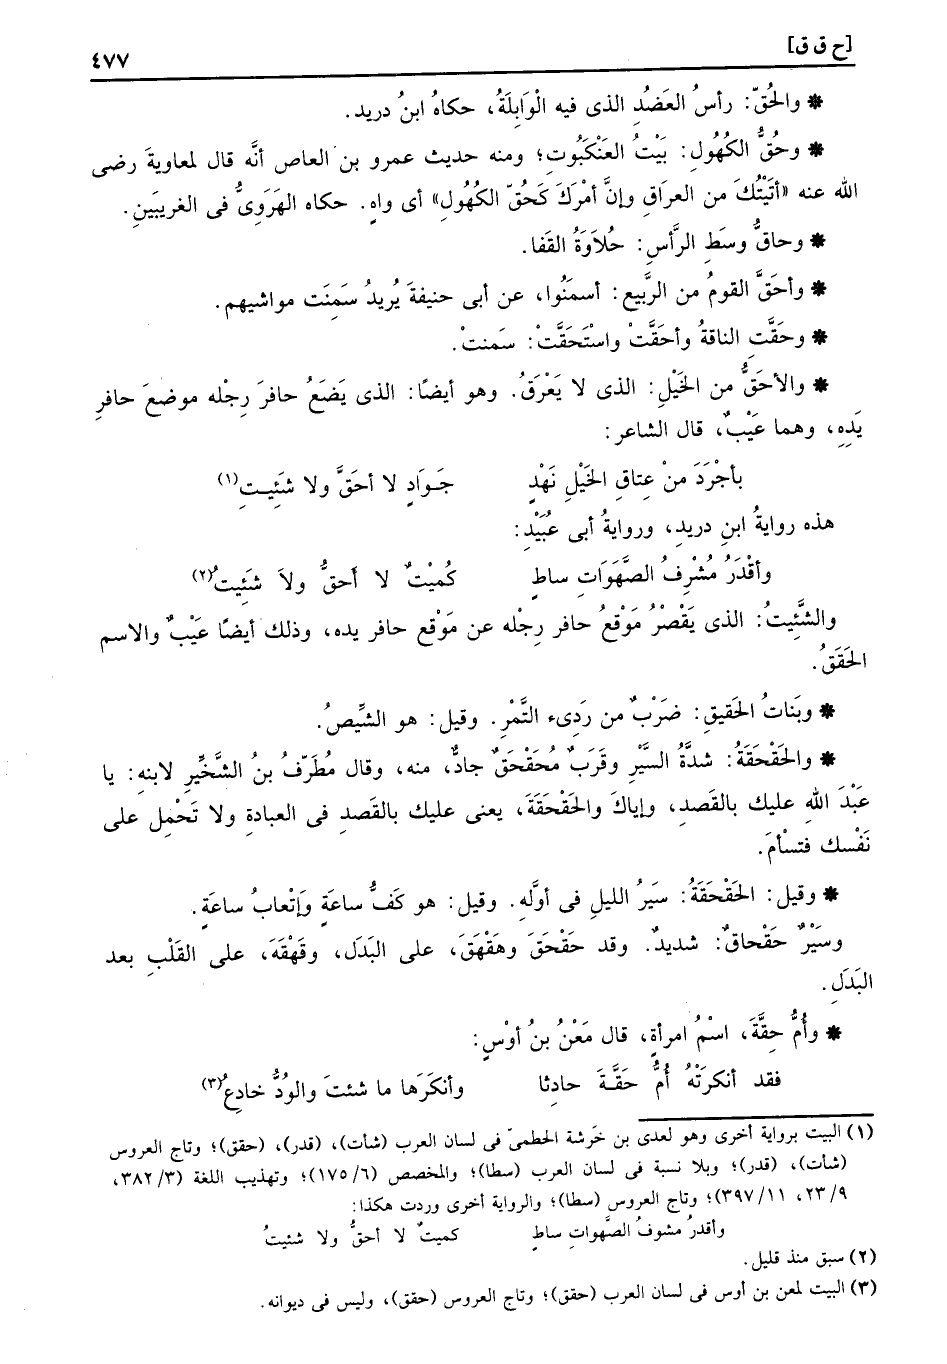 [ح ق ق] ٤٧٧
* والحُقّ: رأسُ العَضُدِ الذى فيه الْوَابِلَةُ، حكاهُ ابنُ دريد.
* وحُقُّ الكُهُولِ: بَيْتُ العَنْكَبُوتِ؛ ومنه حديث عمرو بن العاص أنَّه قال لمعاويةَ رضى
الله عنه «أتَيْتُكَ من العراقِ وإنَّ أمْرَكَ كَحُقّ الكُهُولِ» أى واهٍ. حكاه الهَرَوِىُّ فى الغريبَينِ.
* وحاقُّ وسَطِ الرَّأسِ: حُلاَوَةُ القَفا.
* وأحَقَّ القومُ من الرَّبيع: أسمَنُوا، عن أبى حنيفةَ يُريدُ سَمِنَت مواشيهم.
* وحَقَّتِ الناقةُ وأحَقَّتْ واسْتَحَقَّتْ: سَمنتْ.
* والأحَقُّ من الخَيْلِ: الذى لا يَعْرَقُ. وهو أيضًا: الذى يَضَعُ حافرَ رِجْله موضعَ حافرِ
يَدِهِ، وهما عَيْبٌ، قال الشاعر:
بأجْرَدَ منْ عِتاقِ الخَيْلِ نَهْدٍ جَـوَادٍ لا أحَقَّ ولا شَئِيـتِ(١)
هذه روايةُ ابنِ دريدٍ، وروايةُ أبى عبُيَْدٍ:
وأقْدَرُ مُشْرِفُ الصَّهَوَاتِ ساطٍ كُمَيْتٌ لا أَحقُّ ولاَ شَئيتُ(٢)
والشَّئِيتُ: الذى يَقْصُرُ مَوْقعُ حافر رِجْله عن مَوْقعِ حافر يده، وذلك أيضًا عَيْبٌ والاسم
الحَقَقُ.
* وبَناتُ الحَقيقِ: ضَرَبْ من رَدِىء التَّمْرِ. وقيل: هو الشِّيصُ.
* والحَقْحَقَةُ: شدَّةُ السَّيْرِ وقَرَبٌ مُحَقْحَقٌ جادٌّ، منه، وقال مُطَرِّفُ بنُ الشِّخِّيرِ لابنهِ: يا
عَبْدَ اللهِ عليك بالقَصد، وإياكَ والحَقْحَقَةَ، يعنى عليك بالقَصدِ فى العبادةِ ولا تَحْمِل على
نَفْسك فتسْأمَ.
* وقيل: الحَقْحَقَةُ: سَيرُ الليلِ فى أوَّله. وقيل: هو كَفُّ ساعَةٍ وَإتْعابُ ساعَةٍ.
وسَيْرٌ حَقْحاقٌ: شديدٌ. وقد حَقْحَقَ وهَقْهَقَ، على البَدَل، وقَهْقَهَ، على القَلْبِ بعد
البَدَلِ.
* وأُمُّ حِقَّةَ، اسْمُ امرأةٍ، قال مَعْنُ بنُ أوْسٍ:
فقد أنكرَتْهُ أُمُّ حَقَّـةَ حادِثا وأنكَرَها ما شئتَ والودُّ خادِعُ(٣)
(١) البيت برواية أخرى وهو لعدى بن خَرشة الخطمىّ فى لسان العرب (شأت)، (قدر)، (حقق)؛ وتاج العروس
(شأت)، (قدر)؛ وبلا نسبة فى لسان العرب (سطا)؛ والمخصص (٦/ ١٧٥)؛ وتهذيب اللغة (٣/ ٣٨٢،
٩/ ٢٣، ١١/ ٣٩٧)؛ وتاج العروس (سطا)؛ والرواية أخرى وردت هكذا:
وأقدرُ مشوف الصَّهواتِ ساطٍ كميتٌ لا أحقُّ ولا شئيتُ
(٢) سبق منذ قليل.
(٣) البيت لمعن بن أوس فى لسان العرب (حقق)؛ وتاج العروس (حقق)، وليس فى ديوانه.